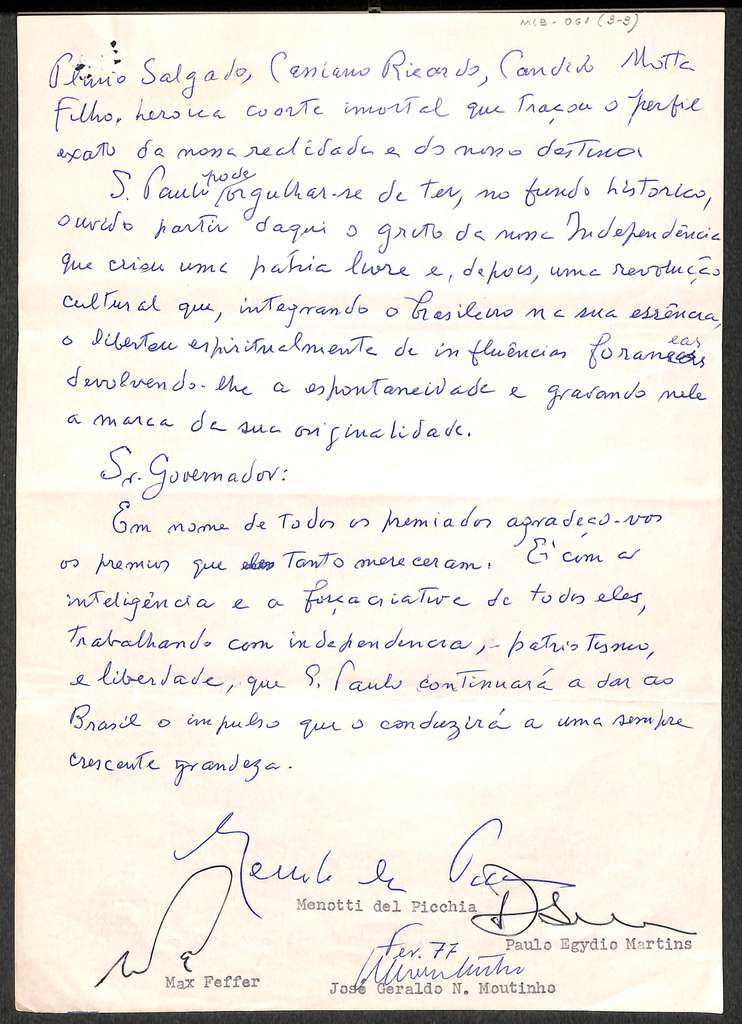 MCB-061 (3-3)
Plinio Salgado, Cassiano Ricardo, Candido Motta
Filho, heroica coorte imortal que traçou o perfil
exato da nossa realidade e do nosso destino.
S. Paulo pode orgulhar-se de ter, no fundo historico,
ouvido partir daqui o grito da nossa Independência
que criou uma pátria livre e, depois, uma revolução
cultural que, integrando o brasileiro na sua essência,
o libertou espiritualmente de influências foraneas
devolvendo-lhe a espontaneidade e gravando nele
a marca da sua originalidade.
Sr. Governador:
Em nome de todos os premiados agradeço-vos
os premios que tanto mereceram. É com a
inteligência e a força criativa de todos eles,
trabalhando com independencia, - patriotismo,
e liberdade, que S. Paulo continuará a dar ao
Brasil o impulso que o conduzirá a uma sempre
crescente grandeza.
Menotti del Picchia
Paulo Egydio Martins
Fev. 77
Max Feffer
José Geraldo N. Moutinho